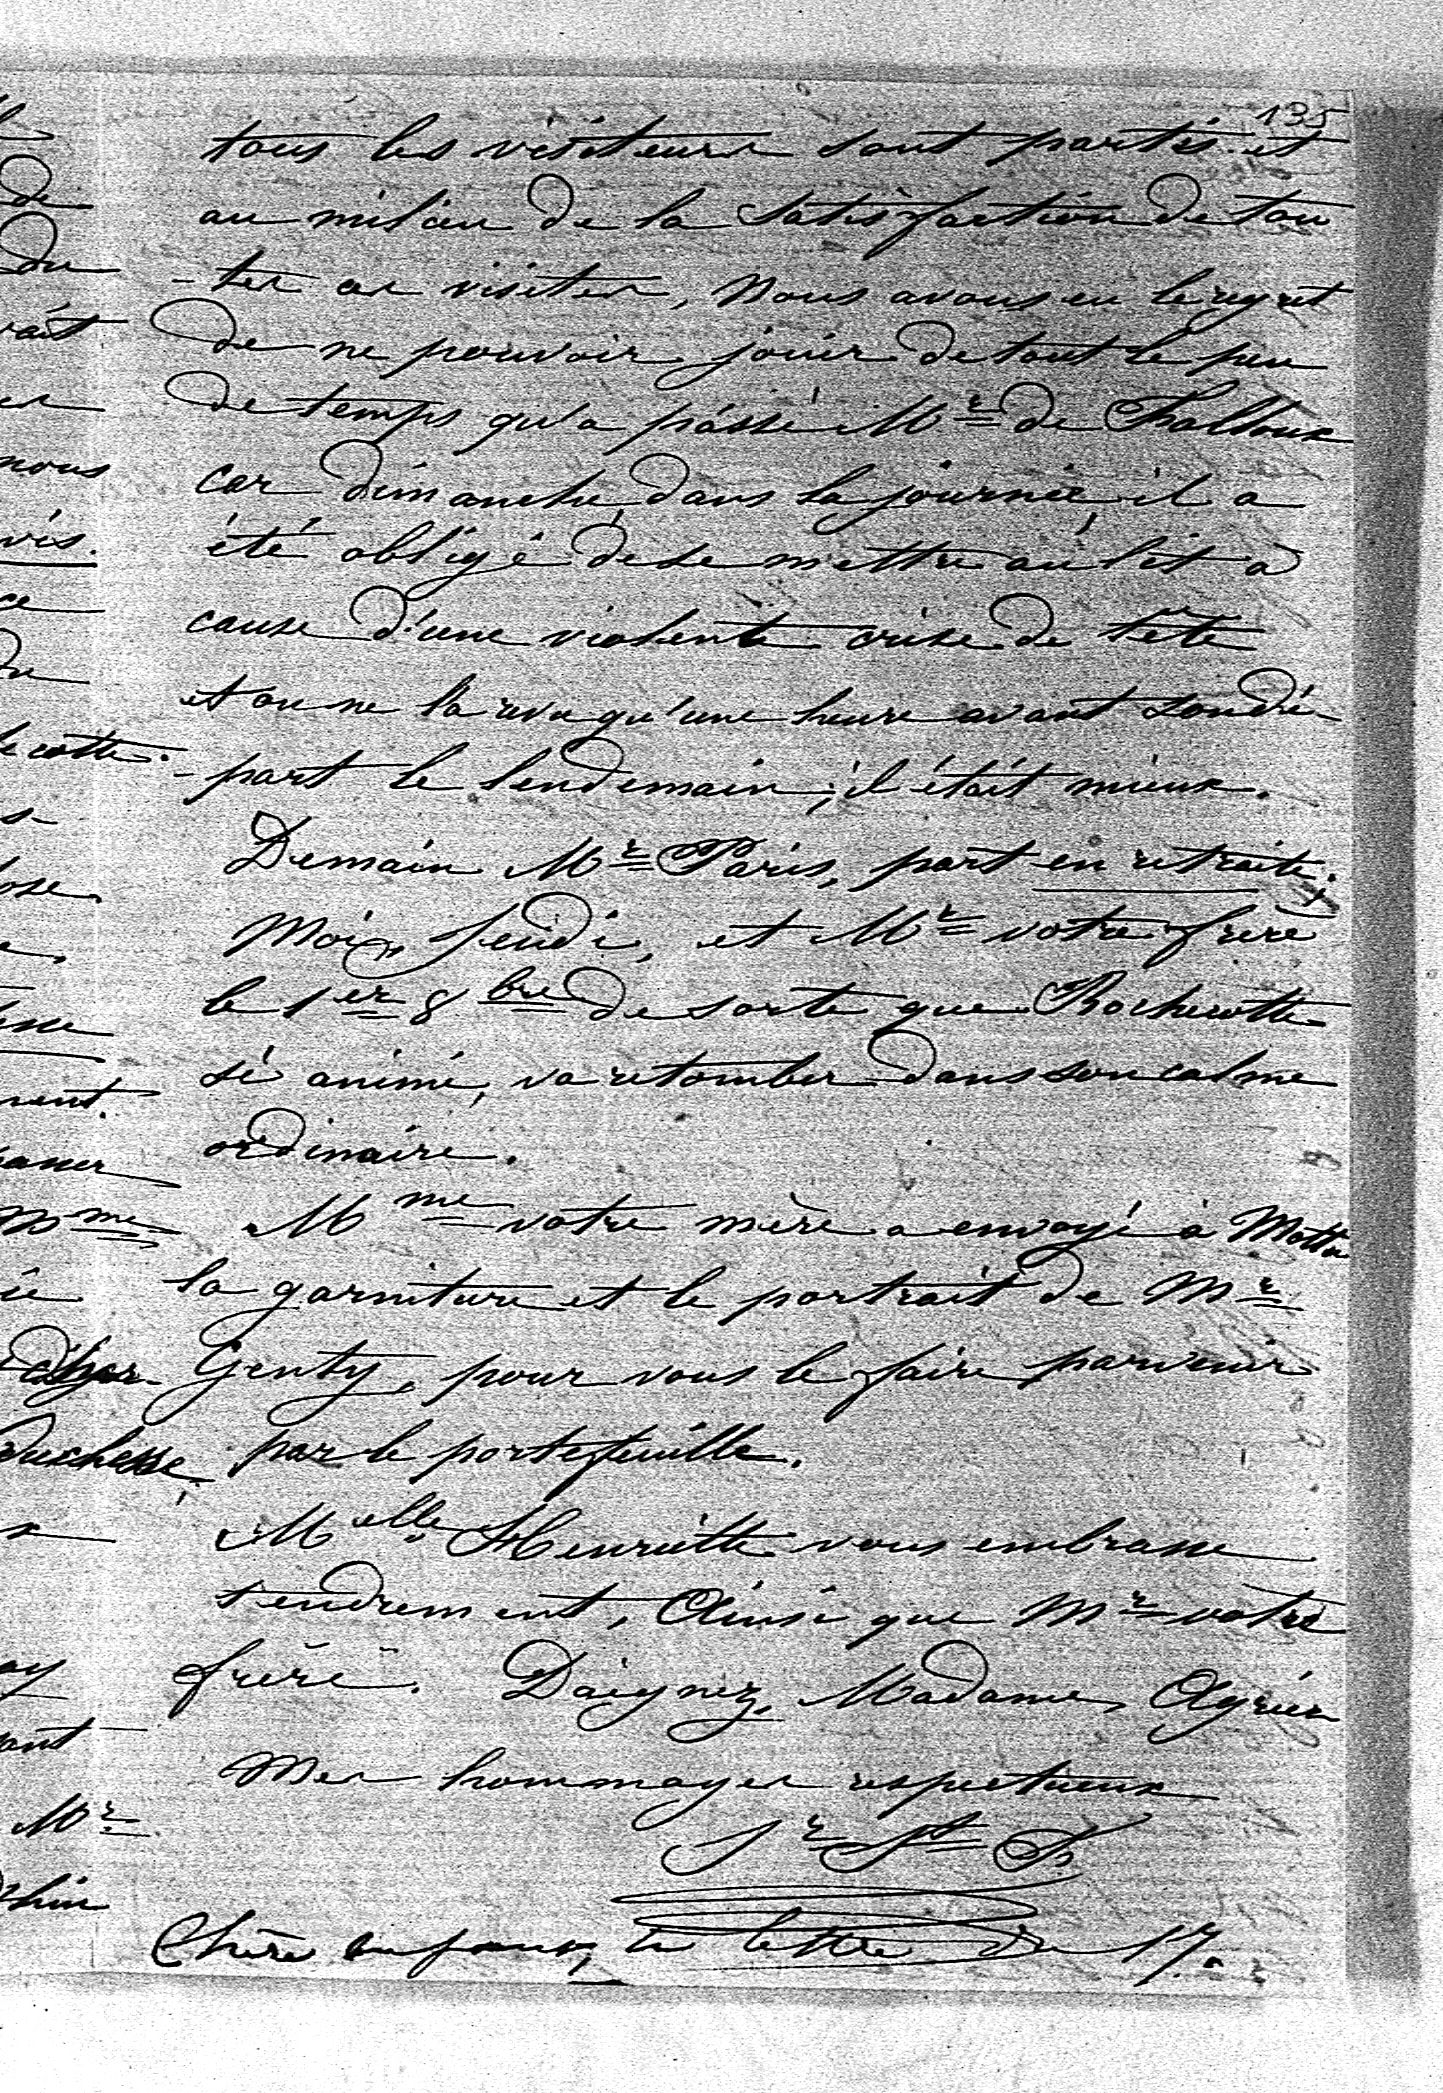 135
tous les visiteurs sont partis et
au milieu de la satisfaction de tou
-tes ces visites, Nous avons eu le regret
de ne pouvoir jouir de tout le peu
de temps qu'a passé Mr de Falloux
car dimanche dans la journée il a
été obligé de se mettre au lit à
cause d'une violente crise de tête
et on ne l'a revu qu'une heure avant son dé-
-part le lendemain, il était mieux.
Demain Mr Paris, part en retraite,
Moi, Jeudi, et Mr votre frère
le 1er 8bre de sorte que Rochecotte
si animé, va retomber dans son calme
ordinaire.
Mme votre mère a envoyé à
la garniture et le portrait de Mr
Genty, pour vous le faire parvenir
par le portefeuille.
Melle Henriette vous embrasse
tendrement, Ainsi que Mr votre
frère. Daignez, Madame, Agréer
Mes hommages respectueux
Chère enfant, ta lettre du 17.